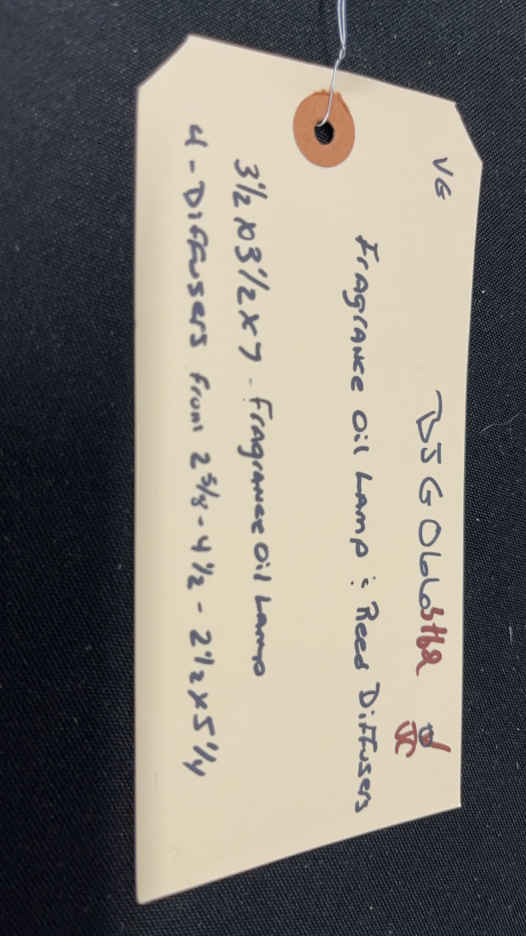 VG
Fragrance Oil Lamp : Reed Diffusers
3 1/2 x 3 1/2 x 7 - Fragrance Oil Lamp
4 - Diffusers from 2 5/8 - 4 1/2 - 2 1/2 x 5 1/4